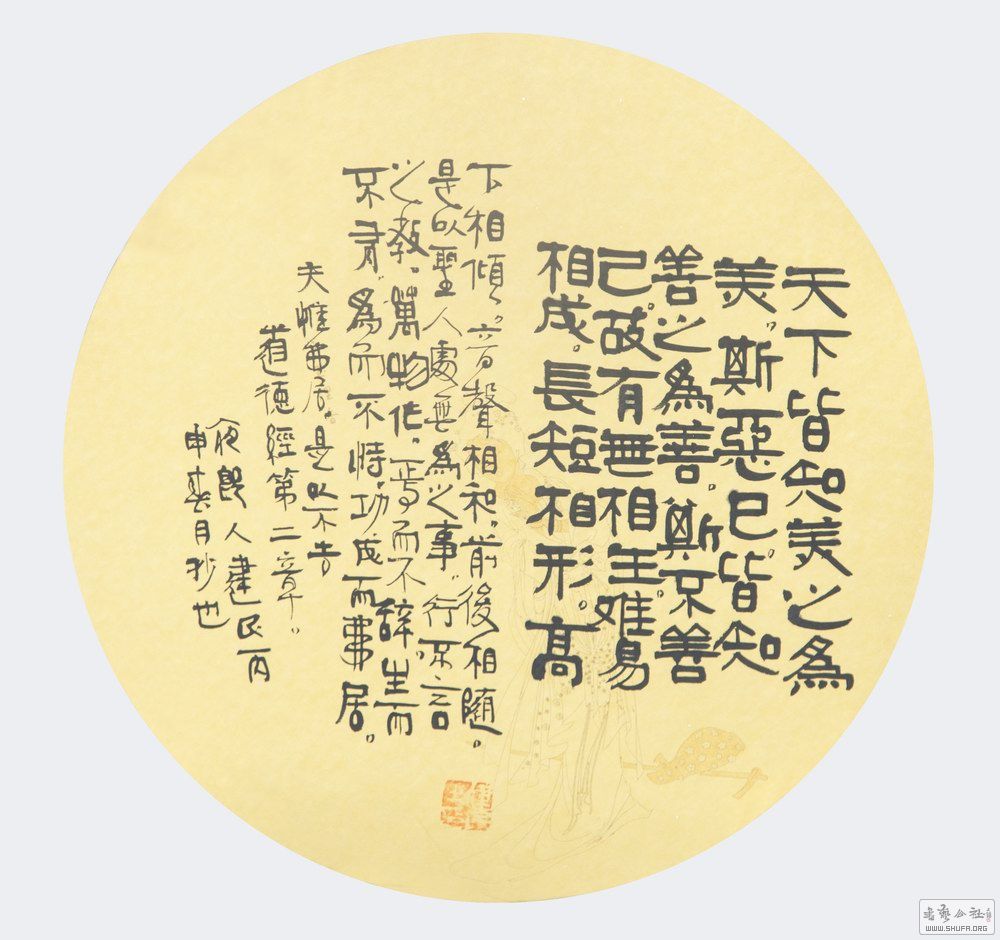 天下皆知美之為
美。斯惡已。皆知
善之為善。斯不善
已。故有無相生。难易
相成。長短相形。高
下相傾。音聲相和。前後相随。
是以聖人處無為之事。行不言
之教。萬物作。焉而不辞。生而
不有。為而不恃。功成而弗居。
夫惟弗居。是以不去
道德經第二章。
夜郎人建民丙
申春月抄也
书艺公社
WWW.SHUFA.ORG